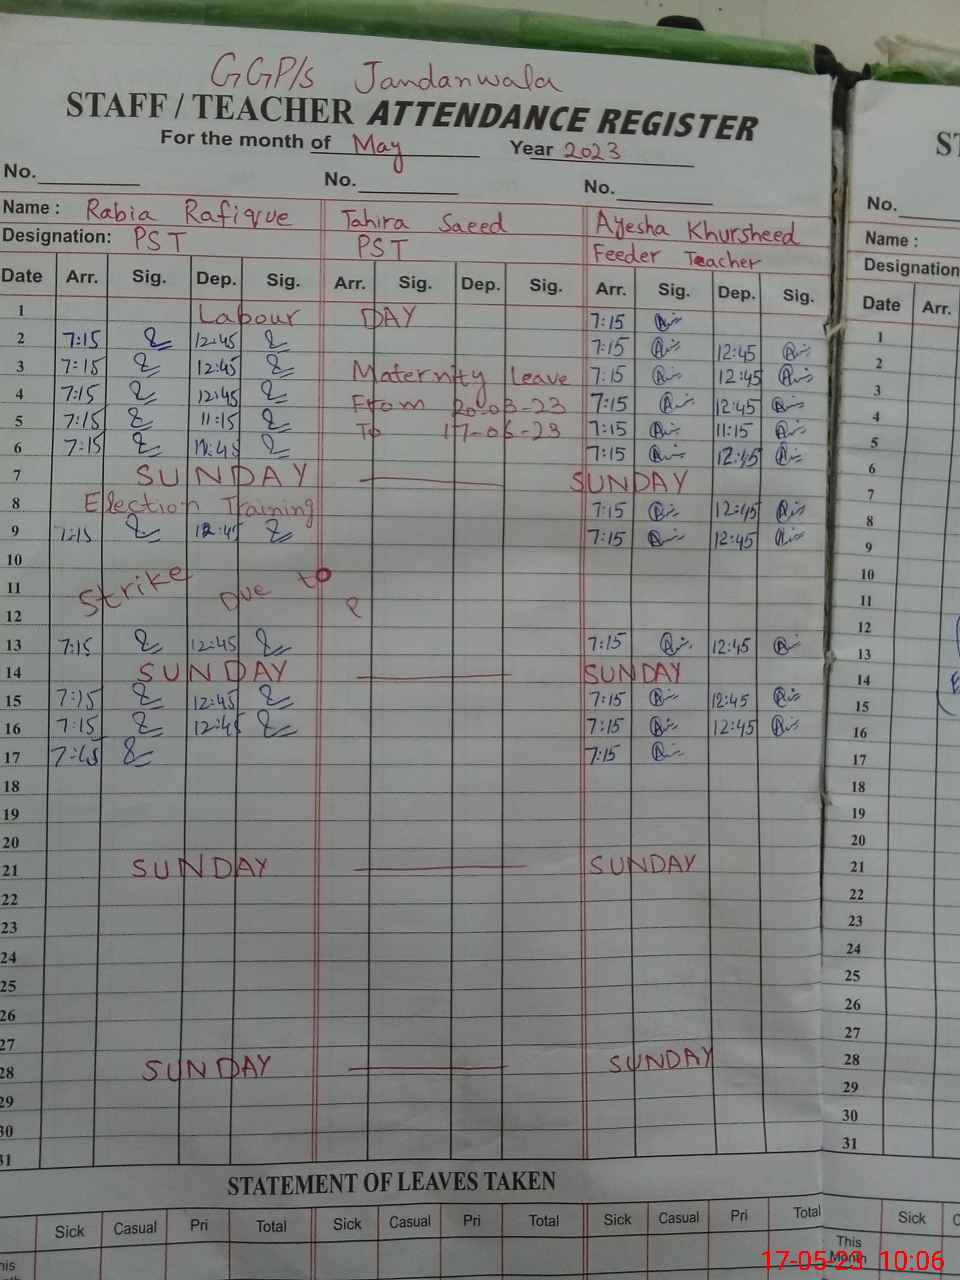 GGP/s Jandanwala
STAFF / TEACHER ATTENDANCE REGISTER
For the month of May Year 2023
No. No. No.
Name : Rabia Rafique Tahira Saeed Ayesha Khursheed
Designation: PST PST Feeder Teacher
Date Arr. Sig. Dep. Sig. Arr. Sig. Dep. Sig. Arr. Sig. Dep. Sig.
1 Labour DAY 7:15
2 7:15 12:45 7:15 12:45
3 7:15 12:45 Maternity Leave 7:15 12:45
4 7:15 12:45 From 20-03-23 7:15 12:45
5 7:15 11:15 To 17-06-23 7:15 11:15
6 7:15 12:45 7:15 12:45
7 SUNDAY SUNDAY
8 Election Training 7:15 12:45
9 7:15 12:45 7:15 12:45
10
11 Strike Due to
12
13 7:15 12:45 7:15 12:45
14 SUNDAY SUNDAY
15 7:15 12:45 7:15 12:45
16 7:15 12:45 7:15 12:45
17 7:15 7:15
18
19
20
21 SUNDAY SUNDAY
22
23
24
25
26
27
28 SUNDAY SUNDAY
29
30
31
STATEMENT OF LEAVES TAKEN
Sick Casual Pri Total Sick Casual Pri Total Sick Casual Pri Total
No.
Name :
Designation
Date Arr.
1
2
3
4
5
6
7
8
9
10
11
12
13
14
15
16
17
18
19
20
21
22
23
24
25
26
27
28
29
30
31
Sick
This
Month
17-05-23 10:06